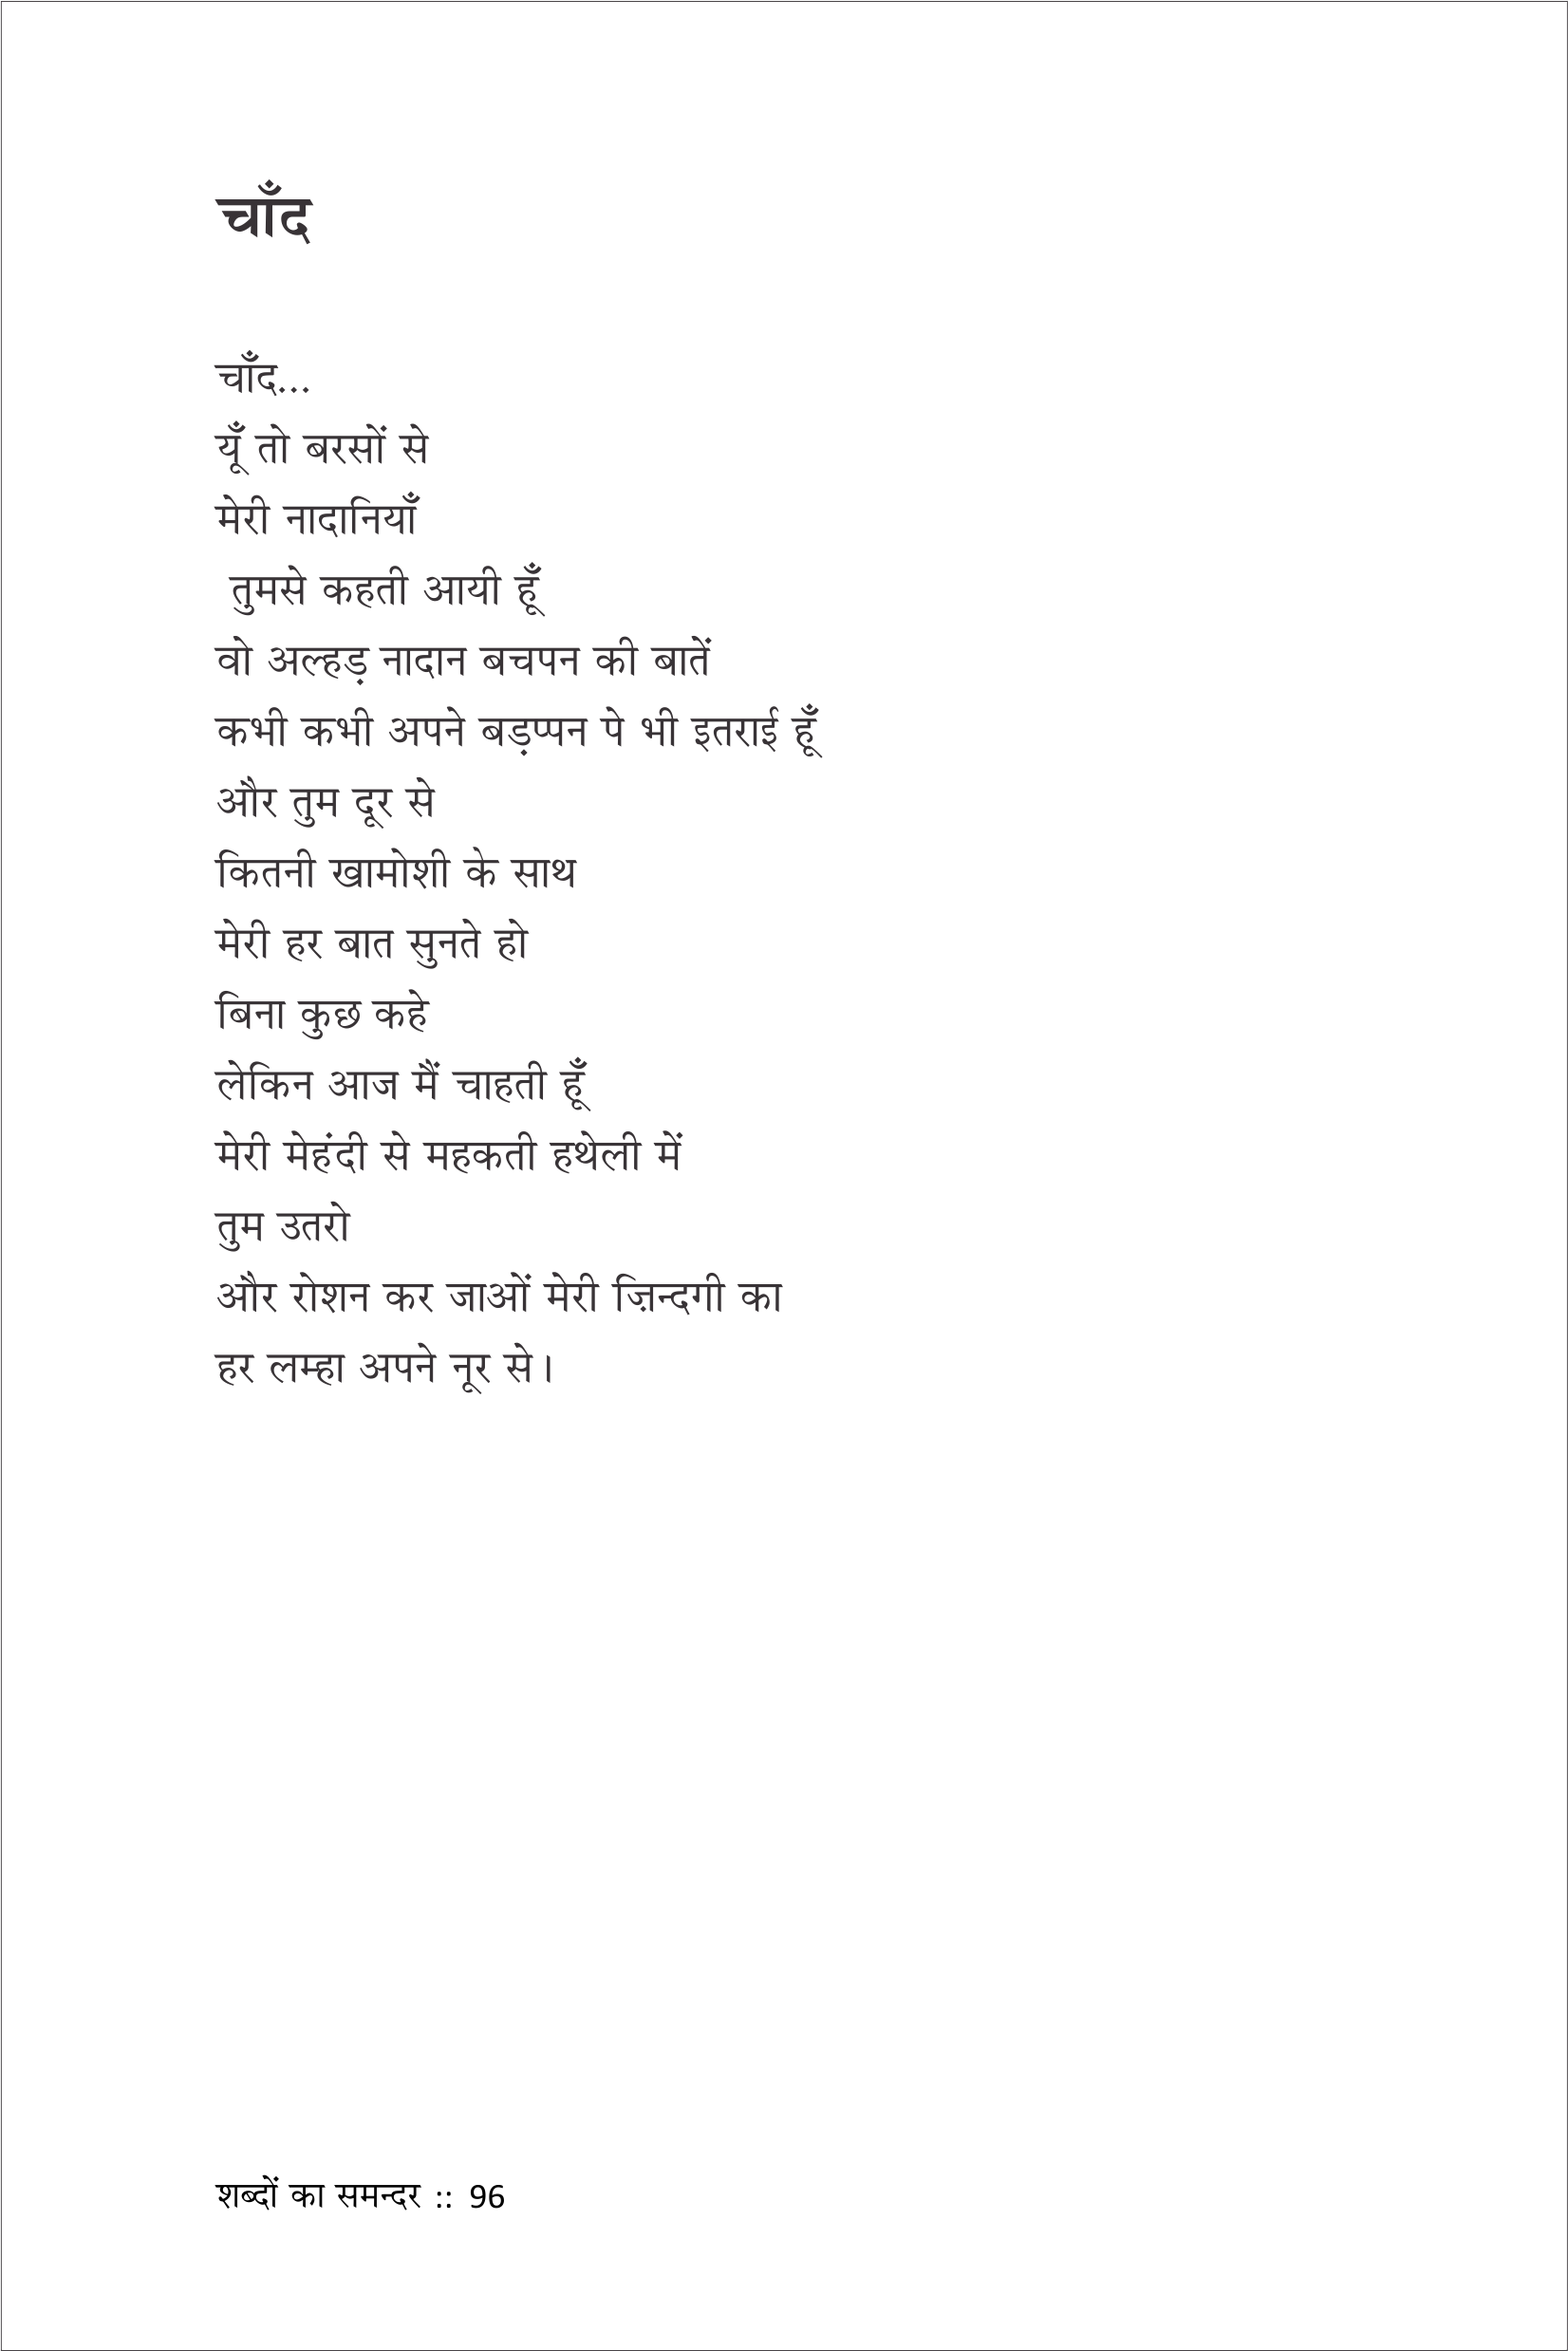 चाँद
चाँद...
यूँ तो बरसों से
मेरी नादानियाँ
तुमसे कहती आयी हूँ
वो अल्हड़ नादान बचपन की बातें
कभी कभी अपने बड़प्पन पे भी इतराई हूँ
और तुम दूर से
कितनी खामोशी के साथ
मेरी हर बात सुनते हो
बिना कुछ कहे
लेकिन आज मैं चाहती हूँ
मेरी मेहंदी से महकती हथेली में
तुम उतरो
और रोशन कर जाओं मेरी ज़िन्दगी का
हर लम्हा अपने नूर से।
शब्दों का समन्दर :: 96